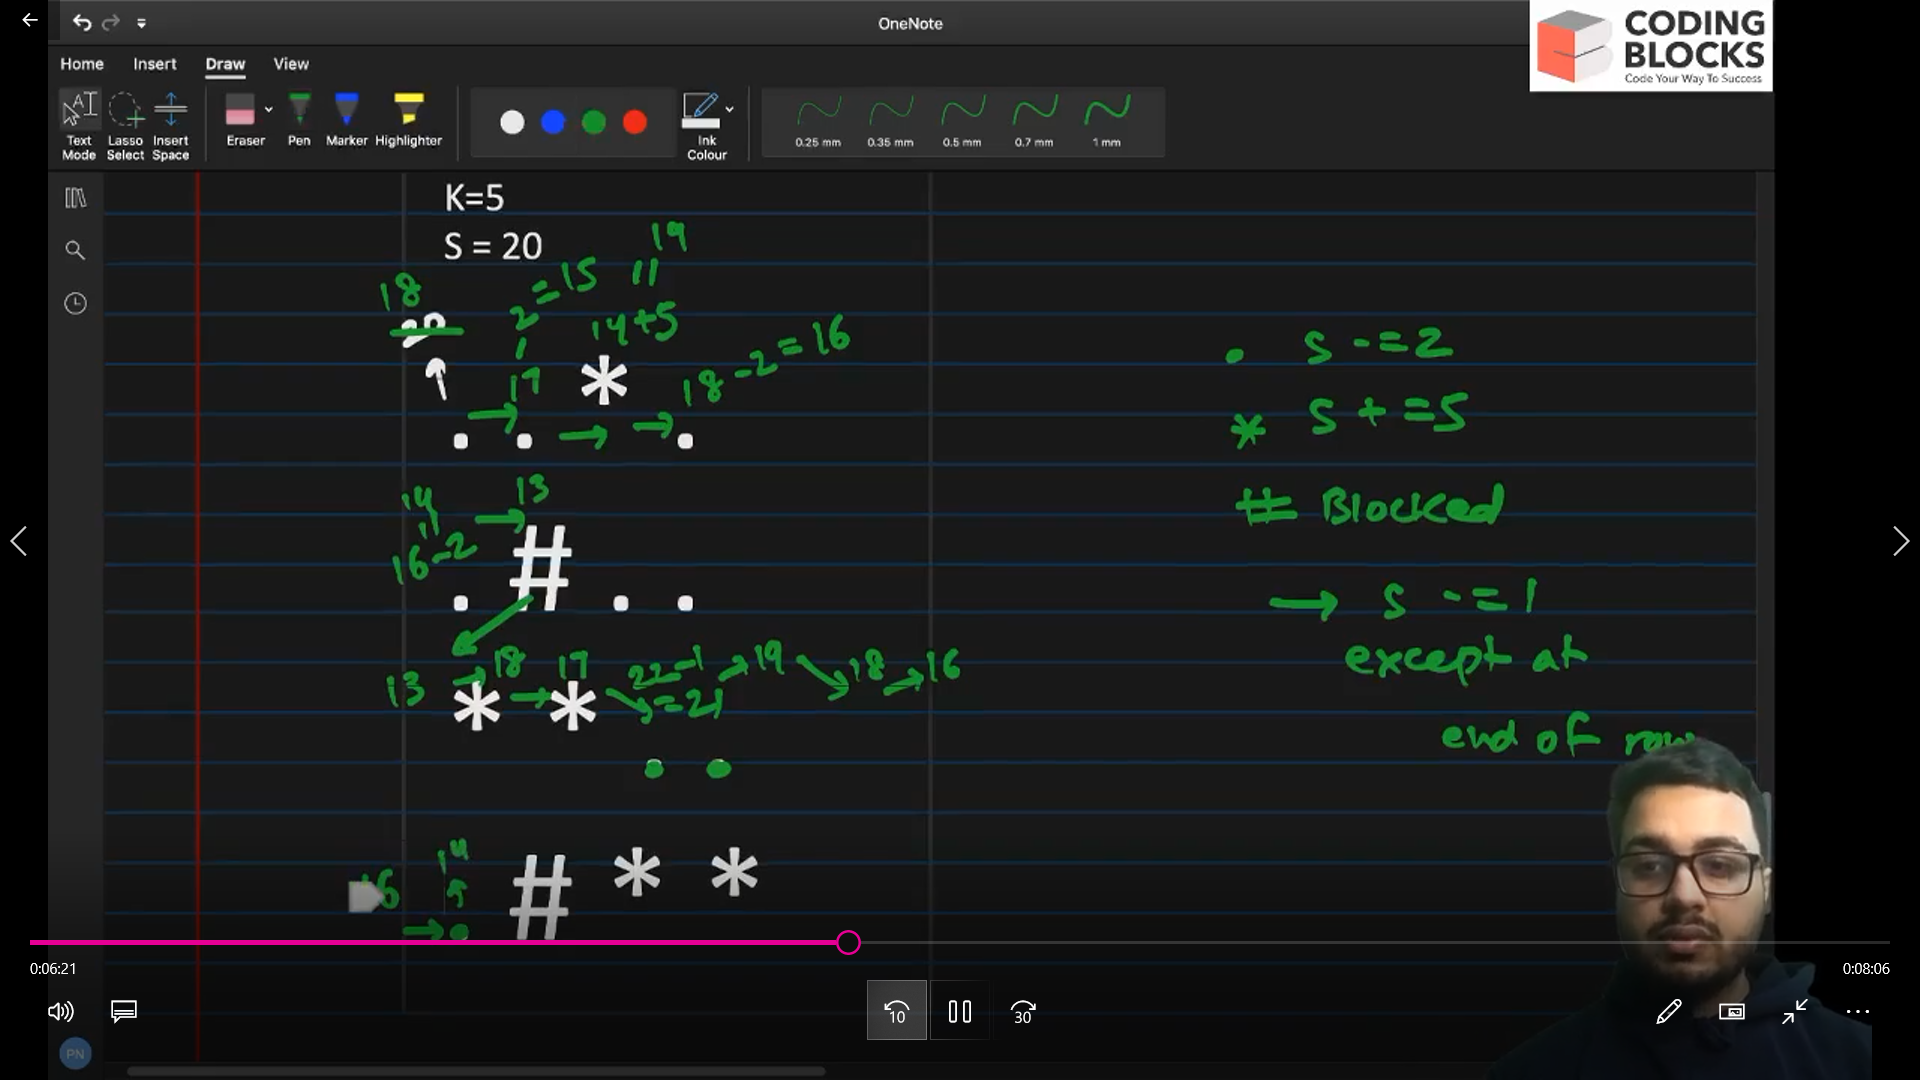 OneNote
CODING
BLOCKS
Code Your Way To Success
Home Insert Draw View
Text Mode
Lasso Select
Insert Space
Eraser
Pen
Marker
Highlighter
Ink Colour
0.25 mm
0.35 mm
0.5 mm
0.7 mm
1 mm
K=5
S = 20
19
11
18
2 = 15
14+5
1
17 * 18 -2 = 16
. → . → → .
14 → 13
11
16-2 #
. . .
13 → 18 17 22-1 → 19 → 18 → 16
* → * = 21
. .
14
16 # * *
→
. S -=2
* S + =5
# Blocked
→ S -=1
except at
end of row
0:06:21
0:08:06
10
30
PN